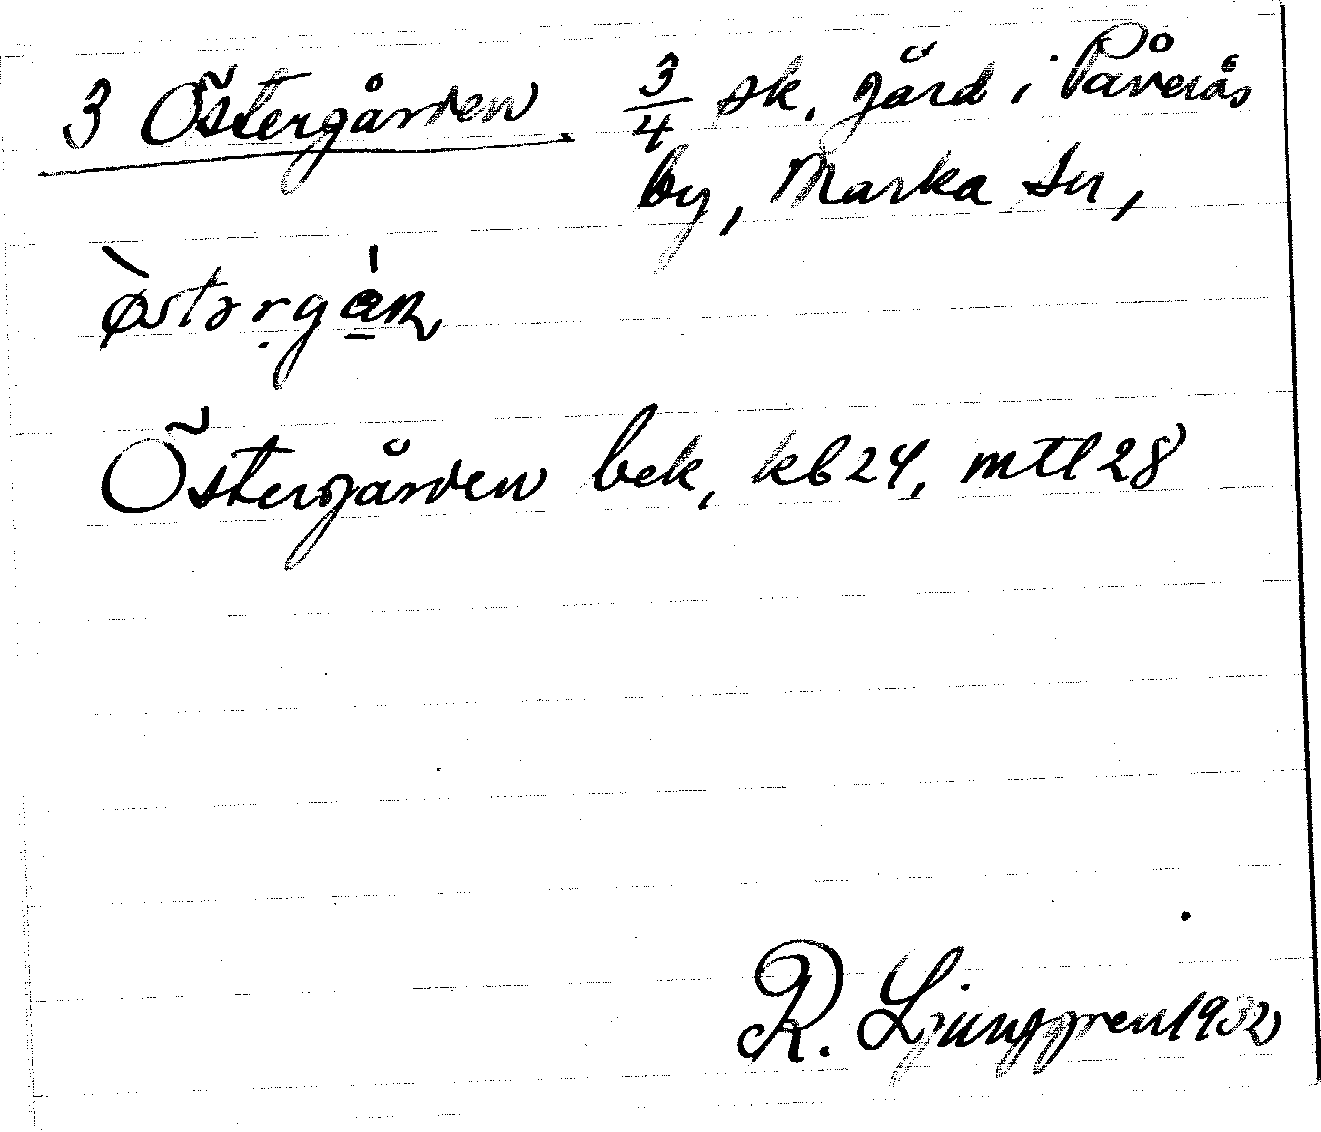 3 Östergården. 3/4 sk. gård i Påverås
by, Marka sn,
Östergården bek, kb 24, mtl 28
R. Ljunggren 1932